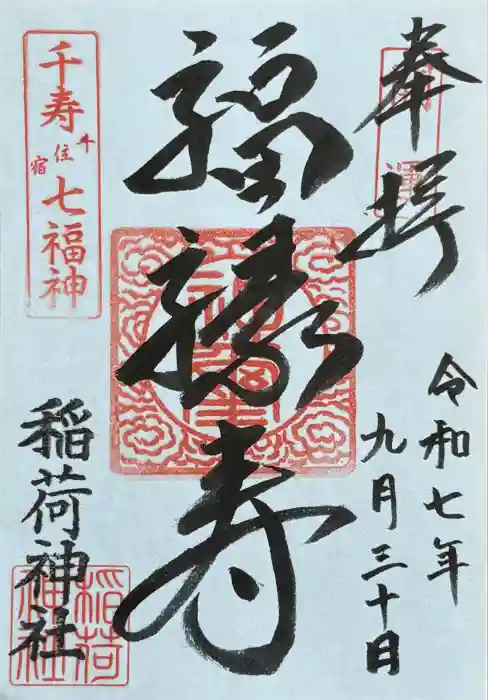 奉拝
令和七年
九月三十日
開運
福禄寿
千寿七福神
千住宿
稲荷神社
稲荷神社